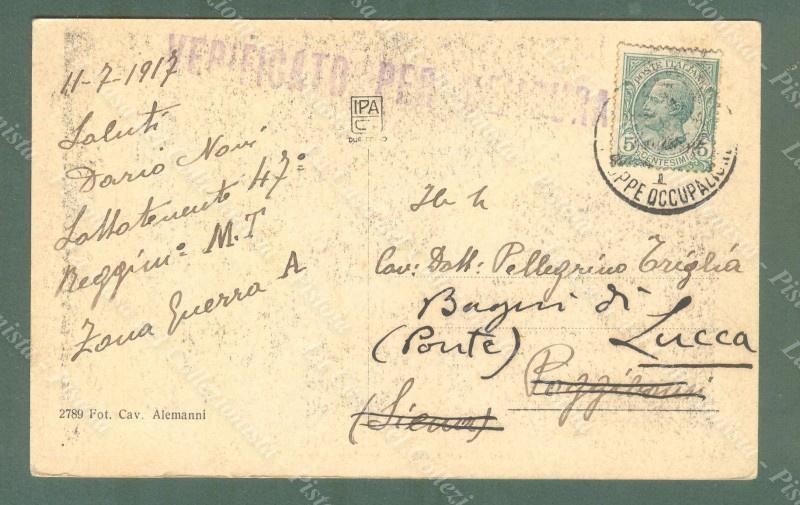 VERIFICATO PER CENSURA
11-7-1917
Saluti
Dario Novi
Sottotenente 47°
Reggim° M.T
Zona Guerra A
IPA
CT
POSTE ITALIANE
5 5
CENTESIMI
1
TRUPPE OCCUPAZION
Cav: Dott: Pellegrino Triglia
Bagni di
(Ponte) Lucca
Poggibonsi
(Siena)
2789 Fot. Cav. Alemanni